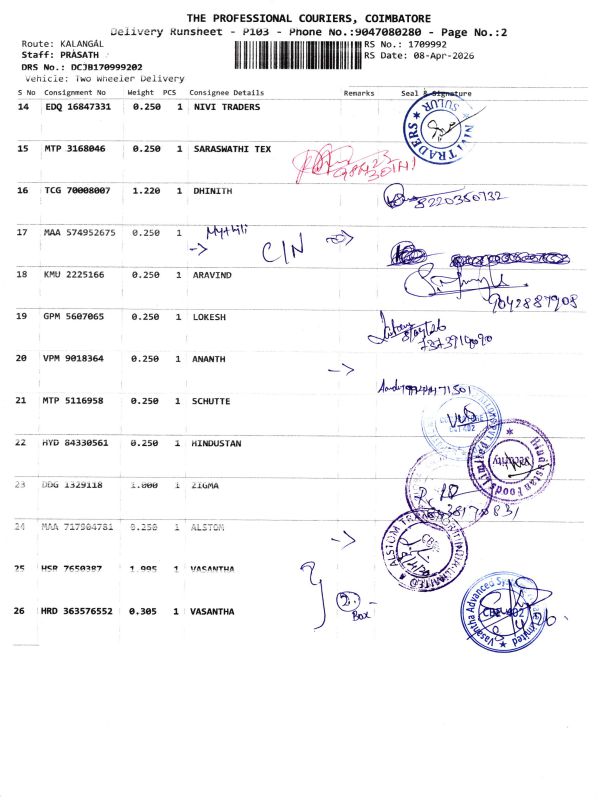 THE PROFESSIONAL COURIERS, COIMBATORE
Delivery Runsheet - P103 - Phone No.:9047080280 - Page No.:2
Route: KALANGAL
RS No.: 1709992
Staff: PRASATH
RS Date: 08-Apr-2026
DRS No.: DCJB170999202
Vehicle: Two Wheeler Delivery
S No Consignment No Weight PCS Consignee Details Remarks Seal & Signature
14 EDQ 16847331 0.250 1 NIVI TRADERS
NIVI TRADERS SULUR
15 MTP 3168046 0.250 1 SARASWATHI TEX
16 TCG 70008007 1.220 1 DHINITH
8220350732
17 MAA 574952675 0.250 1 Mythili
C/N
18 KMU 2225166 0.250 1 ARAVIND
9042887908
19 GPM 5607065 0.250 1 LOKESH
20 VPM 9018364 0.250 1 ANANTH
21 MTP 5116958 0.250 1 SCHUTTE
22 HYD 84330561 0.250 1 HINDUSTAN
Hindustan Foods Limited
Security
23 DDG 1329118 1.000 1 ZIGMA
24 MAA 717904781 0.250 1 ALSTOM
ALSTOM TRANSPORT INDIA LIMITED
25 HSR 7650387 1.995 1 VASANTHA
26 HRD 363576552 0.305 1 VASANTHA
2 Box
Vasantha Advanced Systems Limited